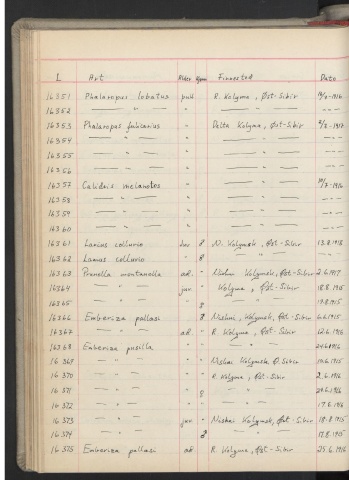 L Art Alder Kjønn Finnested Dato
16351 Phalaropus lobatus pull R. Kolyma, Øst-Sibir
16352 — — " — —
16353 Phalaropus fulicarius " Delta Kolyma, Øst-Sibir
16354 — " — " — —
16355 — " — " — —
16356 — — " — —
16357 Calidris melanotos "
16358 — " — " — —
16359 — " — " — —
16360 — — " — —
16361 Lanius collurio ♂ N. Kolymsk, Øst-Sibir 13.8.1915
16362 Lanius collurio " ♂ — " — — " —
16363 Prunella montanella ad. " Nishni Kolymsk, Øst-Sibir 2.6.1917
16364 — " — juv " Kolyma, Øst-Sibir 18.8.1915
16365 — " — ♀ — " — 17.8.1915
16366 Emberiza pallasi ♂ Nishni, Kolymsk, Øst-Sibir 6.6.1915
16367 — " — ad. " R. Kolyma, Øst-Sibir 12.6.1916
16368 Emberiza pusilla — " — 24.6.1916
16369 — " — Nishni Kolymsk Ø. Sibir 10.6.1915
16370 — " — R. Kolyma, Øst-Sibir 2.6.1916
16371 — " — ♀ — " — 24.6.1916
16372 — " — " — " — 17.6.1916
16373 — " — juv " Nishni Kolymsk, Øst-Sibir 18.8.1915
16374 — " — ♂ — " — 17.8.1915
16375 Emberiza pallasi ad R. Kolyma, Øst-Sibir 25.6.1916